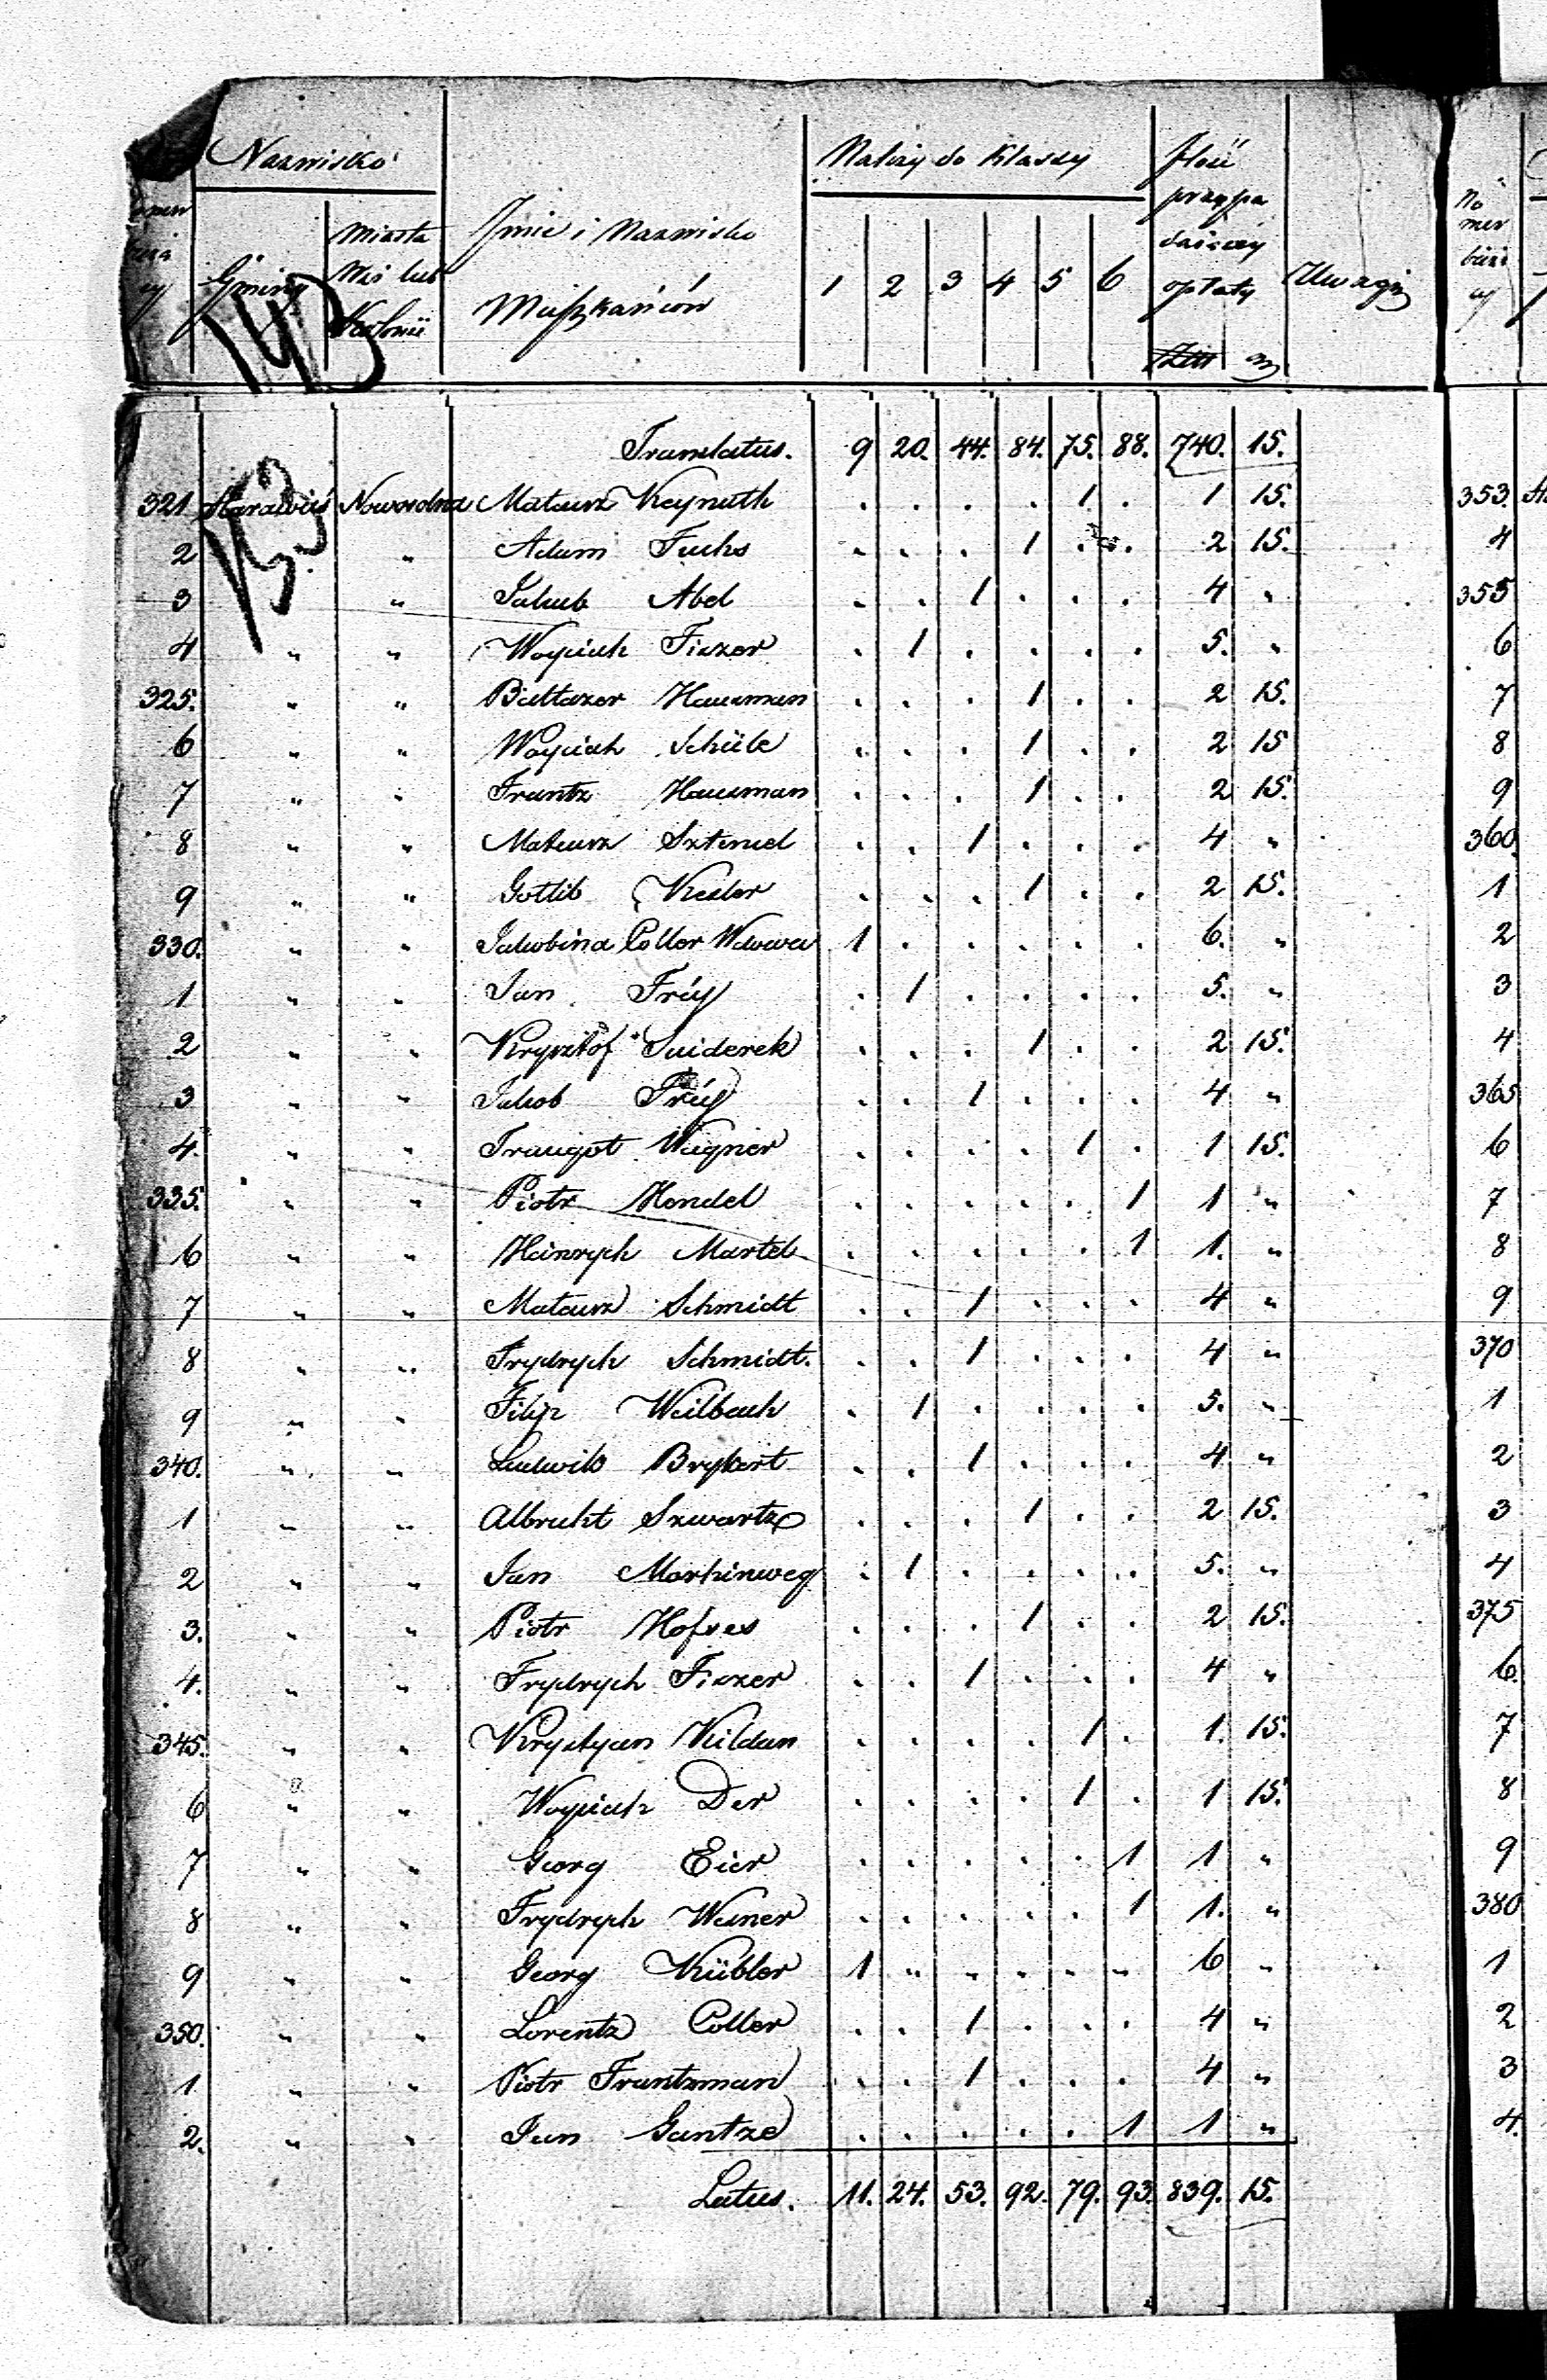 Nazwisko
Gminy
Miasta Wsi lub Kolonii
Imie i Nazwisko Mieszkańców
Należy do Klassy
1 2 3 4 5 6
Ilość przypadaiącey opłaty
Uwagi
143
Translatus. 9 20. 44. 84. 75. 88. 740. 15.
321 Nowosolna Mateusz Keynath . . . . 1 . 1 15.
153
2 " Adam Fuchs . . . 1 . . 2 15.
3 " Jakub Abel . . 1 . . . 4 "
4 " " Woyciech Fiszer . 1 . . . . 5. "
325. " " Baltazer Hausman . . . 1 . . 2 15.
6 " " Woyciech Schüle . . . 1 . . 2 15
7 " " Frantz Hausman . . . 1 . . 2 15.
8 " " Mateusz . . 1 . . . 4 "
9 " " Gotlib Kesler . . . 1 . . 2 15.
330. " " Jakobina Koller Wdowa 1 . . . . . 6. "
1 " " Jan Fréy . 1 . . . . 5. "
2 " " Krysztof Suiderek . . . 1 . . 2 15.
3 " " Jakob Fréy . . 1 . . . 4 "
4. " " Traugot Wagner . . . . 1 . 1 15.
335. " " Piotr Hendel . . . . . 1 1 "
6 " " Heinrych Martel . . . . . 1 1. "
7 " " Mateusz Schmidt . . 1 . . . 4 "
8 " " Frydrych Schmidt. . . 1 . . . 4 "
9 " " Filip Weilbach . 1 . . . . 5. "
340. " " Ludwik Brykert . . 1 . . . 4 "
1 " " Albrecht Szwartz . . . 1 . . 2 15.
2 " " Jan Markinweg . 1 . . . . 5. "
3. " " Piotr Hofses . . . 1 . . 2 15.
4. " " Frydrych Fiszer . . 1 . . . 4 "
345. " " Krystyan Kildan . . . . 1 . 1. 15.
6 " " Woyciech Der . . . . 1 . 1 15.
7 " " Georg Eier . . . . . 1 1 "
8 " " Frydrych Weiner . . . . . 1 1. "
9 " " Georg Kübler 1 " " " " " 6 "
350. " " Lorentz Koller . . 1 . . . 4 "
1. " " Piotr Frantzman . . 1 . . . 4 "
2. " " Jan Gantze . . . . . 1 1 "
Latus. 11. 24. 53. 92. 79. 93. 839. 15.
No mer bież. cy
353.
4
355
6
7
8
9
360.
1
2
3
4
365
6
7
8
9
370
1
2
3
4
375
6.
7
8
9
380
1
2
3
4.